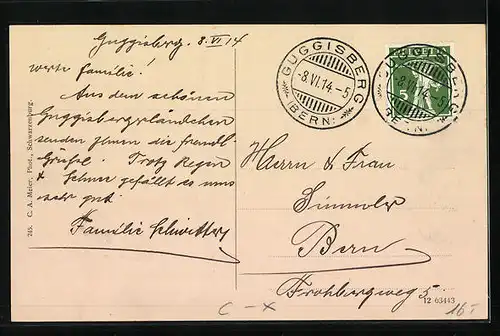 Guggisberg. 8.VI 14
werte Familie!
Aus dem schönen
Guggisbergerländchen
senden Ihnen die freundl.
Grüße. Trotz Regen
& Schnee gefällt es uns
sehr gut.
Familie Schwitter
245. C. A. Meier, Phot., Schwarzenburg.
GUGGISBERG
-8.VI.14.-5
(BERN)
HELVETIA
5
GUGGISBERG
-8.VI.14.-5
(BERN)
Herrn & Frau
Bern
Frohbergweg 5
12 63443
C - x
16.-